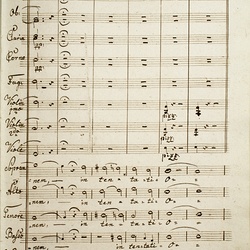 Ob:
Clarin
pp.
Corne
pp.
Fagi
Violin
pmo
pizz
Violin
2do
Viole
pizz
Soprano
nem, in ten- ta- ti- O-
Alto
nem, in ten- ta- ti- O-
Tenore
nem, in ten- ta- ti- O-
Basso
nem, in tentati- O-